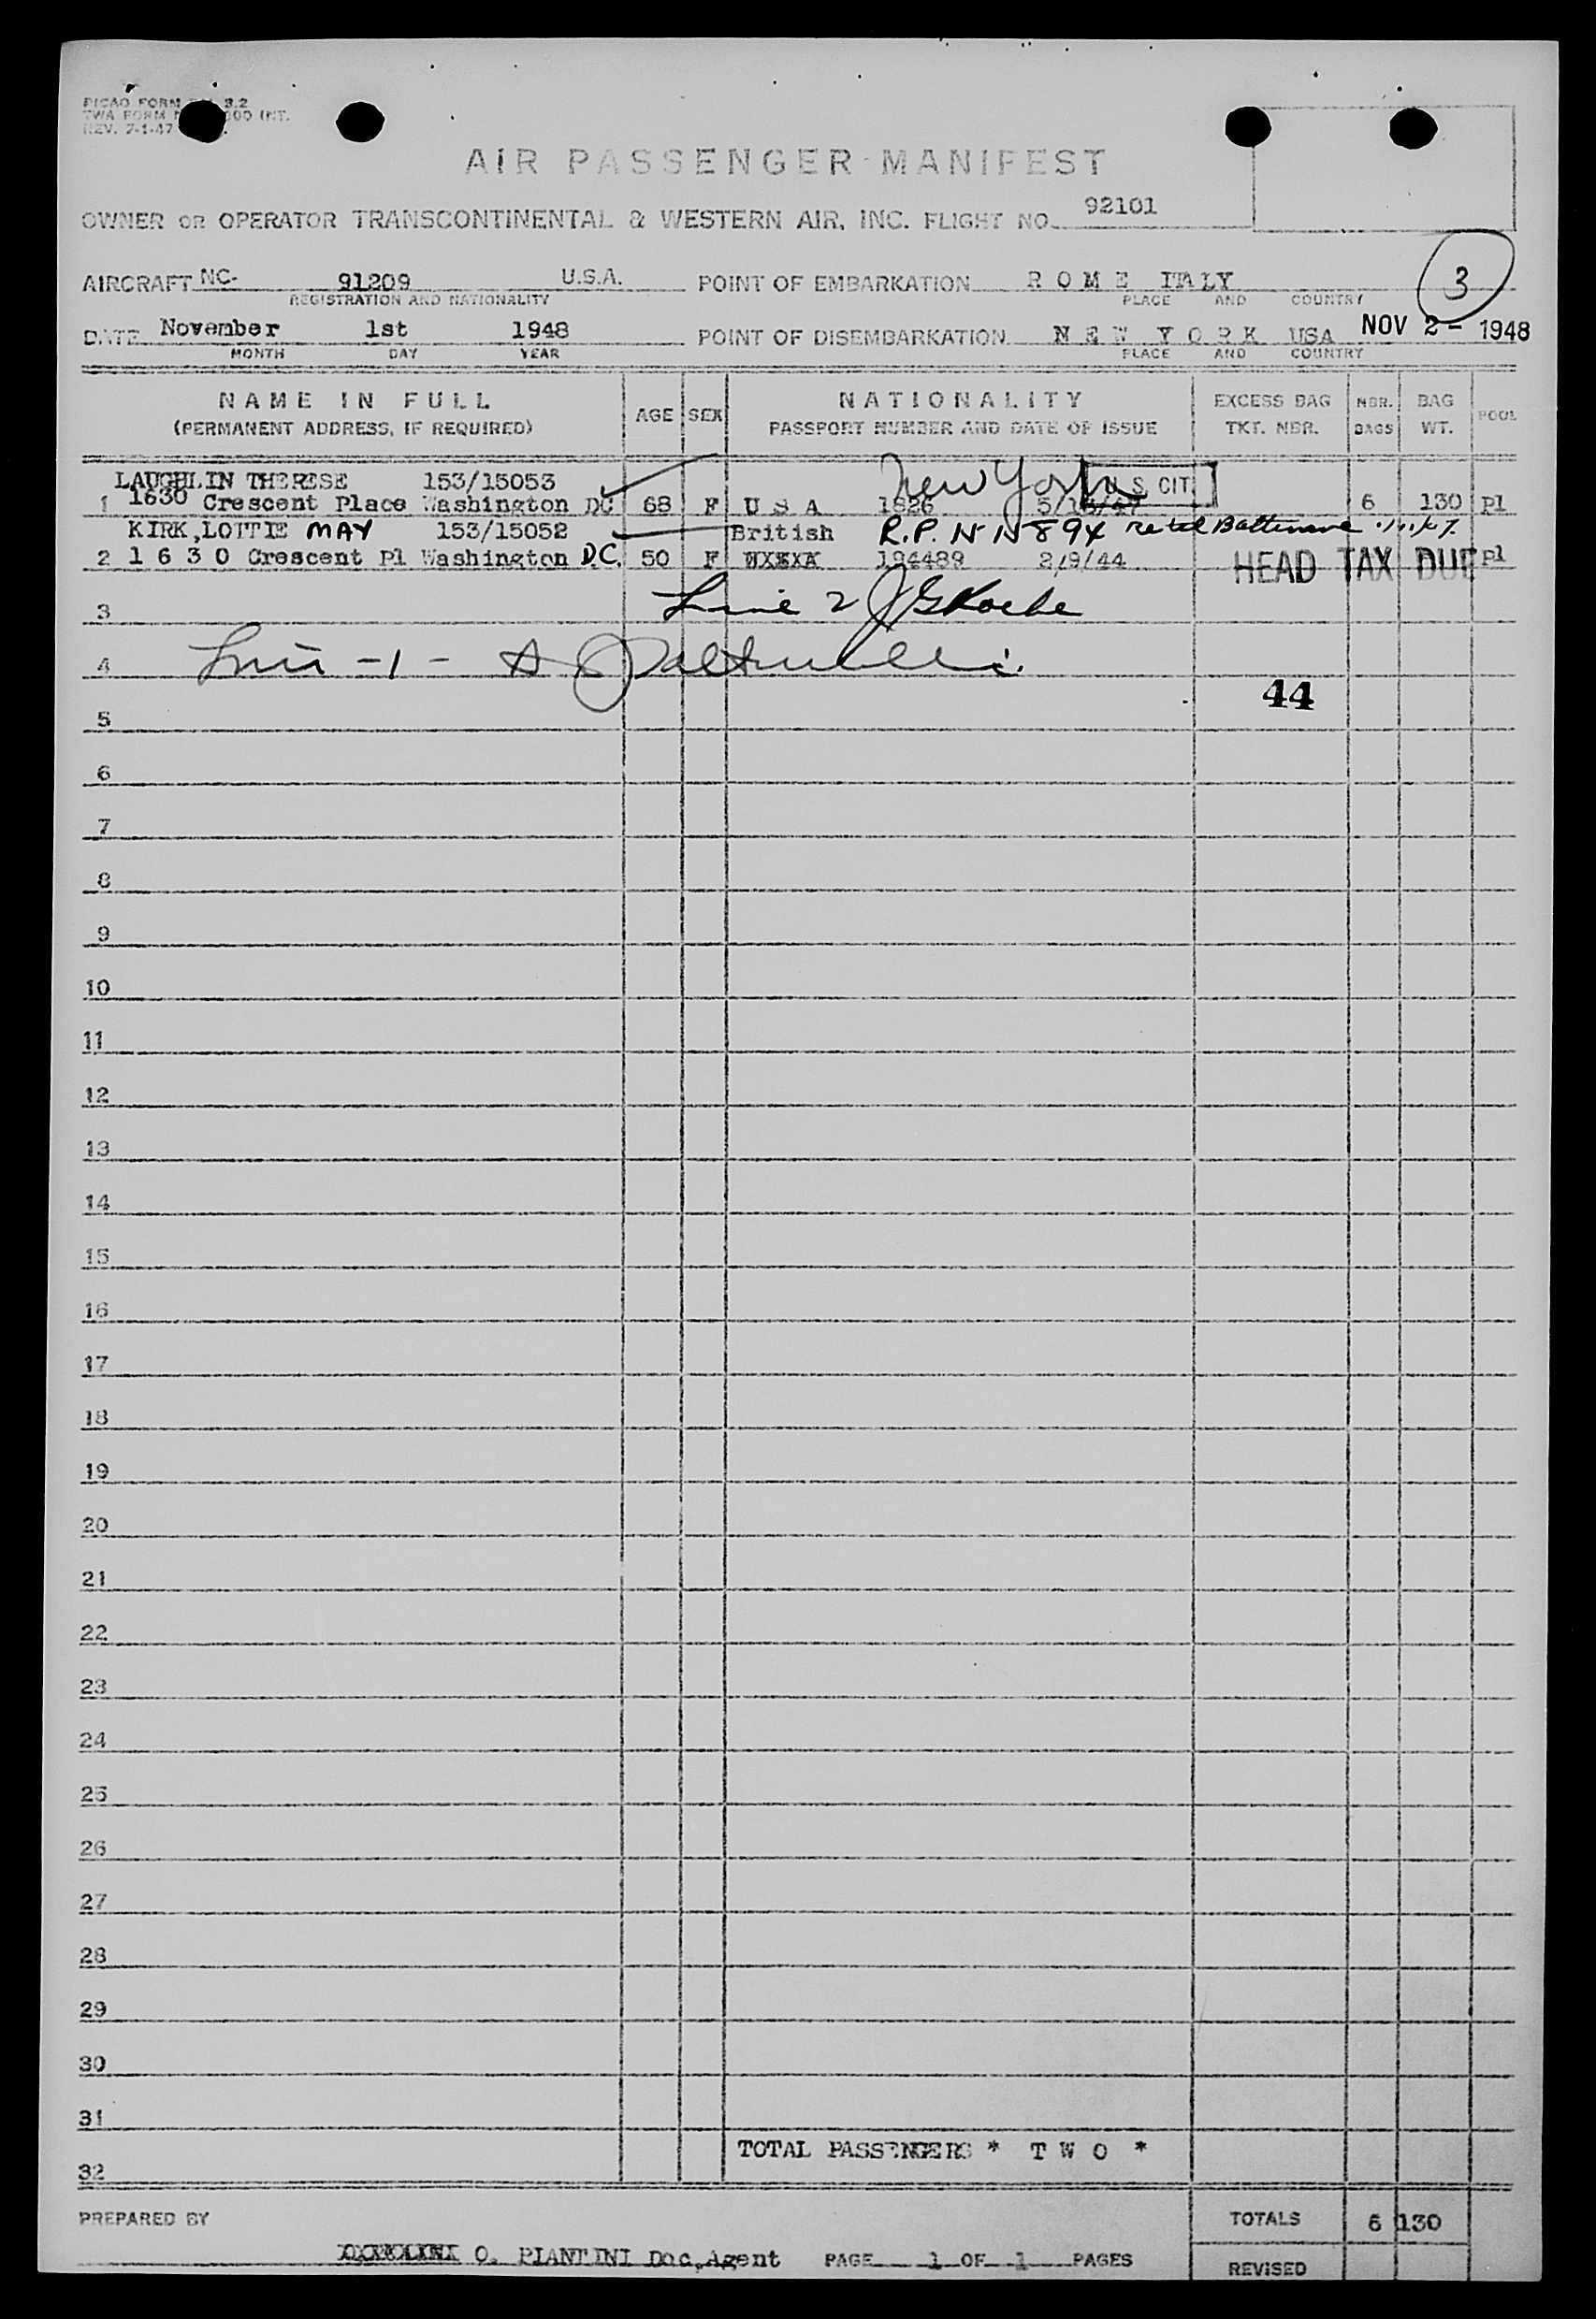 PICAO FORM 3.2
TWA FORM 000 INT.
REV. 7-1-47
AIR PASSENGER MANIFEST
OWNER OR OPERATOR TRANSCONTINENTAL & WESTERN AIR, INC. FLIGHT NO. 92101
AIRCRAFT NC- 91209 U.S.A. POINT OF EMBARKATION R O M E ITALY 3
REGISTRATION AND NATIONALITY PLACE AND COUNTRY
DATE November 1st 1948 POINT OF DISEMBARKATION N E W Y O R K USA NOV 2 - 1948
MONTH DAY YEAR PLACE AND COUNTRY
NAME IN FULL AGE SEX NATIONALITY EXCESS BAG NBR. BAG POOL
(PERMANENT ADDRESS, IF REQUIRED) PASSPORT NUMBER AND DATE OF ISSUE TKT. NBR. BAGS WT.
LAUGHLIN THERESE 153/15053 New York U.S. CIT
1 1630 Crescent Place Washington DC 68 F U S A 1826 6 130 pl
KIRK,LOTTIE MAY 153/15052 British R.P. Baltimore
2 1 6 3 0 Crescent Pl Washington D.C. 50 F 194489 2/9/44 HEAD TAX DUE pl
3 Line 2
4 - 1 -
44
5
6
7
8
9
10
11
12
13
14
15
16
17
18
19
20
21
22
23
24
25
26
27
28
29
30
31
TOTAL PASSENGERS * T W O *
32
PREPARED BY TOTALS 6 130
O. PIANTINI Doc,Agent PAGE 1 OF 1 PAGES REVISED